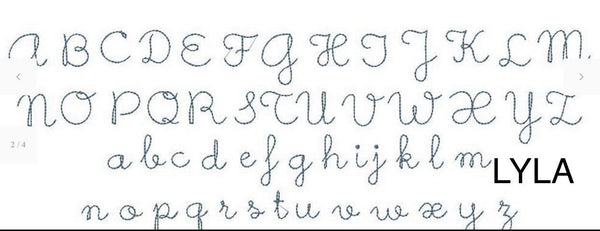 A B C D E F G H I J K L M
N O P Q R S T U V W X Y Z
a b c d e f g h i j k l m
LYLA
n o p q r s t u v w x y z
2 / 4